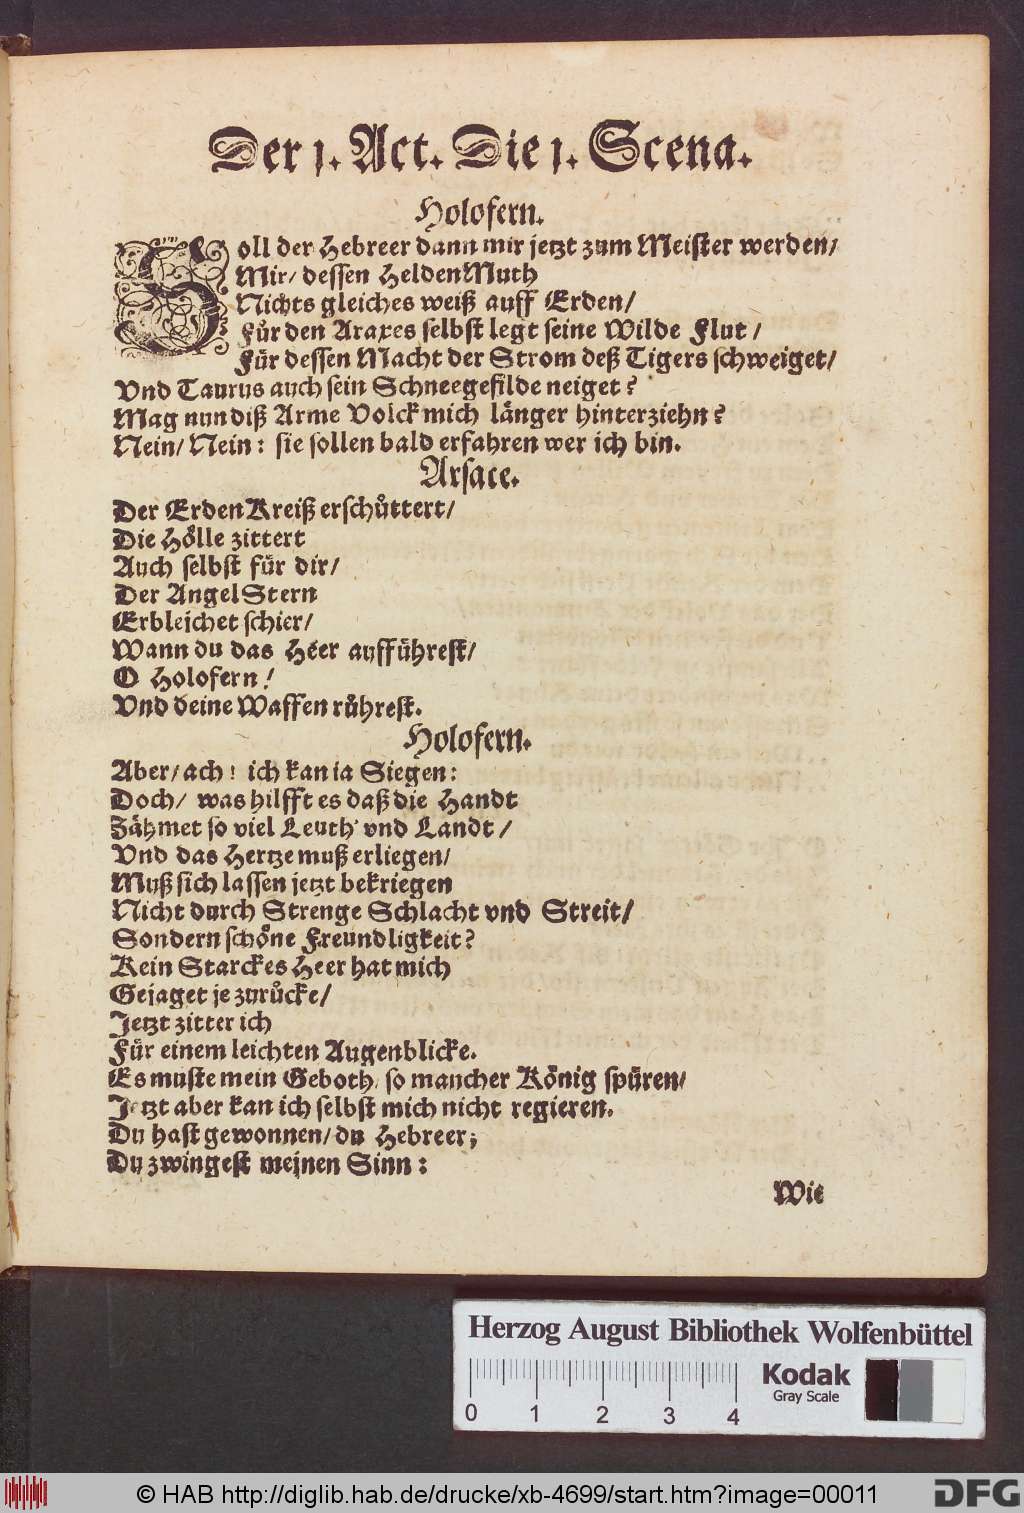 Der 1. Act. Die 1. Scena.
Holofern.
Soll der Hebreer dann mir jetzt zum Meister werden/
Mir/ dessen HeldenMuth
Nichts gleiches weiß auff Erden/
Fůr den Araxes selbst legt seine Wilde Flut /
Für dessen Macht der Strom deß Tigers schweiget/
Vnd Taurus auch sein Schneegefilde neiget?
Mag nun diß Arme Volck mich länger hinterziehn?
Nein/ Nein: sie sollen bald erfahren wer ich bin.
Arsace.
Der ErdenKreiß erschůttert/
Die Hölle zittert
Auch selbst für dir/
Der AngelStern
Erbleichet schier/
Wann du das Héer aufführest/
O Holofern!
Vnd deine Waffen růhrest.
Holofern.
Aber/ ach! ich kan ia Siegen:
Doch/ was hilfft es daß die Handt
Zähmet so viel Leuth' vnd Landt /
Vnd das Hertze muß erliegen/
Muß sich lassen jetzt bekriegen
Nicht durch Strenge Schlacht vnd Streit/
Sondern schöne Freundligkeit?
Kein Starckes Heer hat mich
Gejaget je zurůcke/
Jetzt zitter ich
Für einem leichten Augenblicke.
Es muste mein Geboth/ so mancher König spüren/
Jetzt aber kan ich selbst mich nicht regieren.
Du hast gewonnen/ du Hebreer;
Du zwingest meinen Sinn:
Wie
Herzog August Bibliothek Wolfenbüttel
Kodak
Gray Scale
0 1 2 3 4
© HAB http://diglib.hab.de/drucke/xb-4699/start.htm?image=00011
DFG